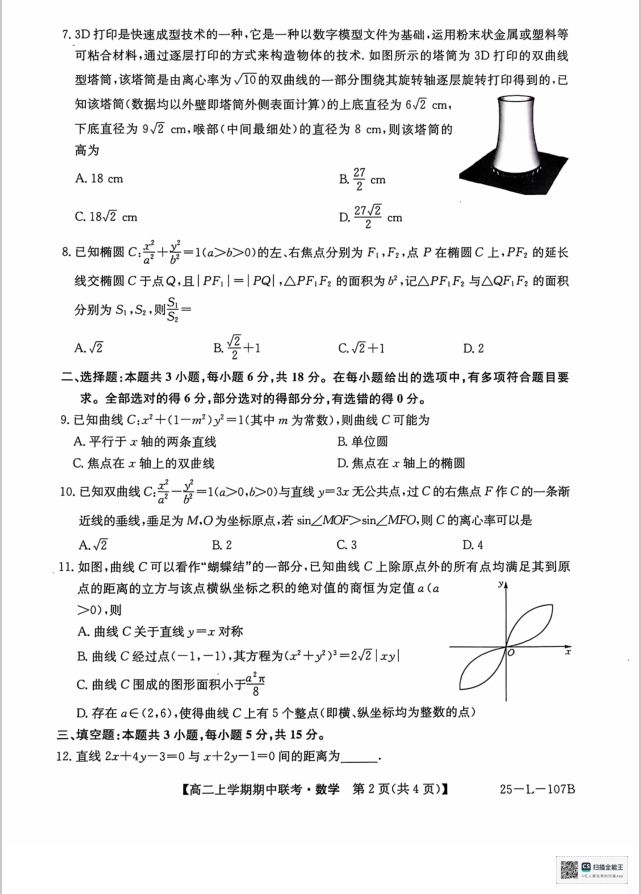 7. 3D 打印是快速成型技术的一种,它是一种以数字模型文件为基础,运用粉末状金属或塑料等
可粘合材料,通过逐层打印的方式来构造物体的技术. 如图所示的塔筒为 3D 打印的双曲线
型塔筒,该塔筒是由离心率为√10的双曲线的一部分围绕其旋转轴逐层旋转打印得到的,已
知该塔筒(数据均以外壁即塔筒外侧表面计算)的上底直径为 6√2 cm,
下底直径为 9√2 cm,喉部(中间最细处)的直径为 8 cm,则该塔筒的
高为
A. 18 cm B. 27/2 cm
C. 18√2 cm D. 27√2/2 cm
8. 已知椭圆 C: x²/a²+y²/b²=1(a>b>0)的左、右焦点分别为 F₁,F₂,点 P 在椭圆 C 上,PF₂ 的延长
线交椭圆 C 于点 Q,且|PF₁|=|PQ|,△PF₁F₂ 的面积为 b²,记△PF₁F₂ 与△QF₁F₂ 的面积
分别为 S₁,S₂,则S₁/S₂=
A. √2 B. √2/2+1 C. √2+1 D. 2
二、选择题:本题共 3 小题,每小题 6 分,共 18 分。在每小题给出的选项中,有多项符合题目要
求。全部选对的得 6 分,部分选对的得部分分,有选错的得 0 分。
9. 已知曲线 C:x²+(1−m²)y²=1(其中 m 为常数),则曲线 C 可能为
A. 平行于 x 轴的两条直线 B. 单位圆
C. 焦点在 x 轴上的双曲线 D. 焦点在 x 轴上的椭圆
10. 已知双曲线 C: x²/a²−y²/b²=1(a>0,b>0)与直线 y=3x 无公共点,过 C 的右焦点 F 作 C 的一条渐
近线的垂线,垂足为 M,O 为坐标原点,若 sin∠MOF>sin∠MFO,则 C 的离心率可以是
A. √2 B. 2 C. 3 D. 4
11. 如图,曲线 C 可以看作“蝴蝶结”的一部分,已知曲线 C 上除原点外的所有点均满足其到原
点的距离的立方与该点横纵坐标之积的绝对值的商恒为定值 a(a
>0),则
A. 曲线 C 关于直线 y=x 对称
B. 曲线 C 经过点(−1,−1),其方程为(x²+y²)³=2√2|xy|
C. 曲线 C 围成的图形面积小于a²π/8
D. 存在 a∈(2,6),使得曲线 C 上有 5 个整点(即横、纵坐标均为整数的点)
y
O
x
三、填空题:本题共 3 小题,每小题 5 分,共 15 分。
12. 直线 2x+4y−3=0 与 x+2y−1=0 间的距离为______.
【高二上学期期中联考·数学 第 2 页(共 4 页)】 25−L−107B
CS 扫描全能王